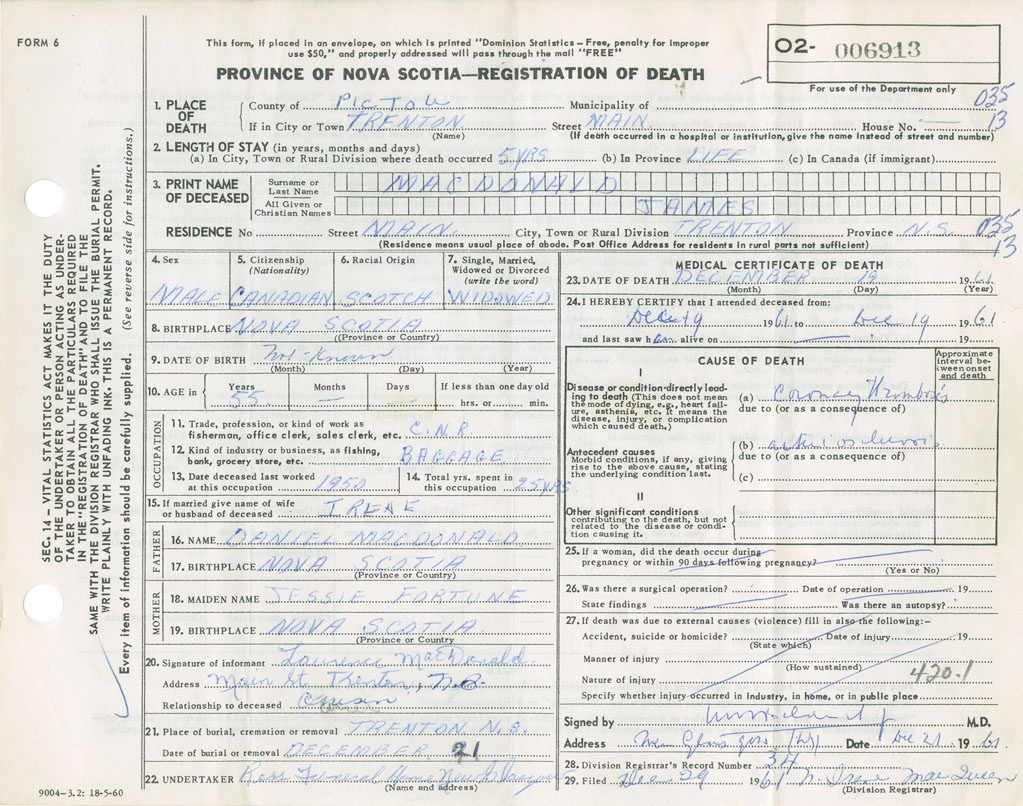 FORM 6
This form, if placed in an envelope, on which is printed "Dominion Statistics – Free, penalty for improper
use $50," and properly addressed will pass through the mail "FREE"
O2- 006913
For use of the Department only
PROVINCE OF NOVA SCOTIA—REGISTRATION OF DEATH
035
13
1. PLACE OF DEATH
County of PICTOU Municipality of
If in City or Town TRENTON Street MAIN House No. —
(Name) (If death occurred in a hospital or institution, give the name instead of street and number)
2. LENGTH OF STAY (in years, months and days)
(a) In City, Town or Rural Division where death occurred 5 YRS (b) In Province LIFE (c) In Canada (if immigrant)
3. PRINT NAME OF DECEASED
Surname or Last Name MACDONALD
All Given or Christian Names JAMES
RESIDENCE No Street MAIN City, Town or Rural Division TRENTON Province N.S. 035
13
(Residence means usual place of abode. Post Office Address for residents in rural parts not sufficient)
4. Sex MALE
5. Citizenship (Nationality) CANADIAN
6. Racial Origin SCOTCH
7. Single, Married, Widowed or Divorced (write the word) WIDOWED
8. BIRTHPLACE NOVA SCOTIA
(Province or Country)
9. DATE OF BIRTH Not Known
(Month) (Day) (Year)
10. AGE in Years 55 Months — Days — If less than one day old hrs. or min.
OCCUPATION
11. Trade, profession, or kind of work as
fisherman, office clerk, sales clerk, etc. C.N.R
12. Kind of industry or business, as fishing,
bank, grocery store, etc. BAGGAGE
13. Date deceased last worked at this occupation 1950
14. Total yrs. spent in this occupation 25 YRS
15. If married give name of wife
or husband of deceased IRENE
FATHER
16. NAME DANIEL MACDONALD
17. BIRTHPLACE NOVA SCOTIA
(Province or Country)
MOTHER
18. MAIDEN NAME JESSIE FORTUNE
19. BIRTHPLACE NOVA SCOTIA
(Province or Country
20. Signature of informant Laurence MacDonald
Address Main St. Trenton, N.S.
Relationship to deceased Cousin
21. Place of burial, cremation or removal TRENTON N.S.
Date of burial or removal DECEMBER 21
22. UNDERTAKER Ross Funeral Home New Glasgow
(Name and address)
9004-3.2: 18-5-60
MEDICAL CERTIFICATE OF DEATH
23. DATE OF DEATH DECEMBER 19 1961
(Month) (Day) (Year)
24. I HEREBY CERTIFY that I attended deceased from:
Dec 19 1961 to Dec 19 1961
and last saw h alive on — 19
CAUSE OF DEATH
Approximate interval between onset and death
I
Disease or condition directly leading to death (This does not mean the mode of dying, e.g., heart failure, asthenia, etc. It means the disease, injury, or complication which caused death.)
(a) Coronary Thrombosis
due to (or as a consequence of)
Antecedent causes
Morbid conditions, if any, giving rise to the above cause, stating the underlying condition last.
(b)
due to (or as a consequence of)
(c)
II
Other significant conditions
contributing to the death, but not related to the disease or condition causing it.
25. If a woman, did the death occur during
pregnancy or within 90 days following pregnancy?
(Yes or No)
26. Was there a surgical operation? Date of operation 19
State findings Was there an autopsy?
27. If death was due to external causes (violence) fill in also the following:–
Accident, suicide or homicide? Date of injury 19
(State which)
Manner of injury
(How sustained)
Nature of injury 420.1
Specify whether injury occurred in industry, in home, or in public place
Signed by M.D.
Address Date Dec 21 1961
28. Division Registrar's Record Number 34
29. Filed Dec 29 1961 N. Irene MacQueen
(Division Registrar)
SEC. 14 – VITAL STATISTICS ACT MAKES IT THE DUTY
OF THE UNDERTAKER OR PERSON ACTING AS UNDER-
TAKER TO OBTAIN ALL THE PARTICULARS REQUIRED
IN THE "REGISTRATION OF DEATH" AND TO FILE THE
SAME WITH THE DIVISION REGISTRAR WHO SHALL ISSUE THE BURIAL PERMIT.
WRITE PLAINLY WITH UNFADING INK. THIS IS A PERMANENT RECORD.
Every item of information should be carefully supplied. (See reverse side for instructions.)